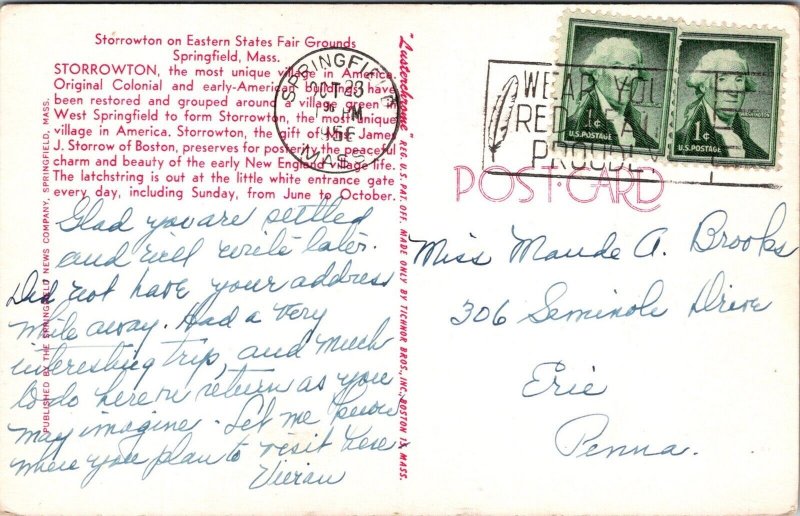 Storrowton on Eastern States Fair Grounds
Springfield, Mass.
STORROWTON, the most unique village in America.
Original Colonial and early-American buildings have
been restored and grouped around a village green in
West Springfield to form Storrowton, the most unique
village in America. Storrowton, the gift of Mrs. James
J. Storrow of Boston, preserves for posterity the peaceful
charm and beauty of the early New England village life.
The latchstring is out at the little white entrance gate
every day, including Sunday, from June to October.
Glad you are settled
and will write later.
Did not have your address
while away. Had a very
interesting trip, and much
to do here on return as you
may imagine. Let me know
when you plan to visit here
Vivian
PUBLISHED BY THE SPRINGFIELD NEWS COMPANY, SPRINGFIELD, MASS.
"Lusterchrome" REG. U.S. PAT. OFF. MADE ONLY BY TICHNOR BROS., INC., BOSTON 15, MASS.
SPRINGFIELD
OCT 23
PM
MASS
WEAR YOU
RED
PROUDLY
1¢
U.S. POSTAGE
1¢
WASHINGTON
U.S. POSTAGE
POST CARD
Miss Maude A. Brooks
306 Seminole Drive
Erie
Penna.